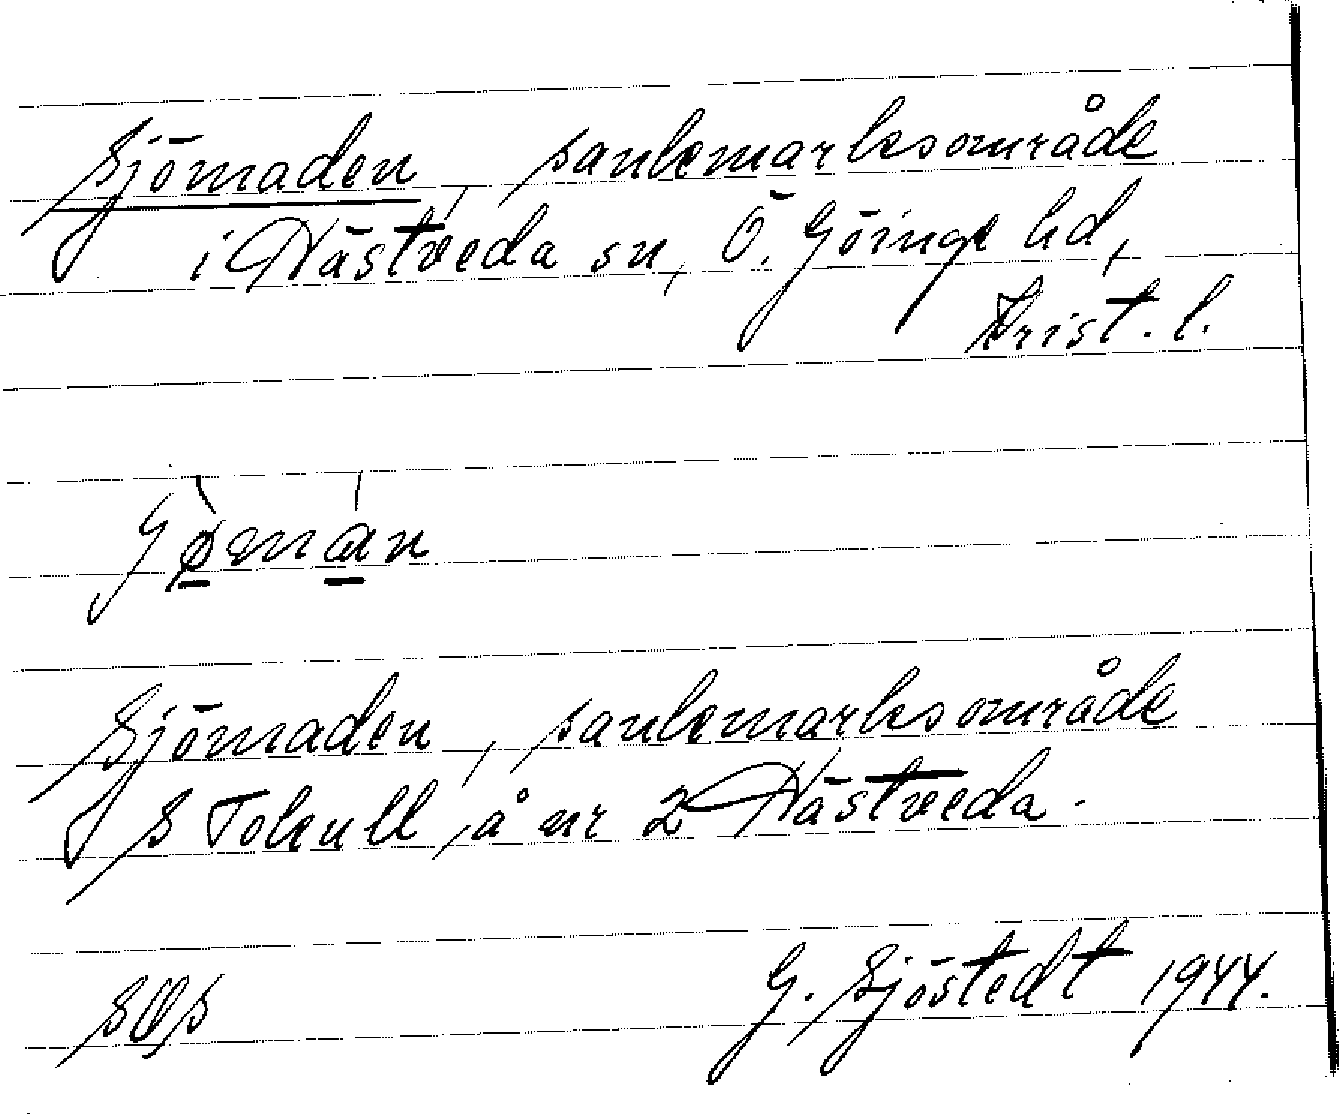 Sjömaden, sankmarksområde
i Hästveda sn, Ö. Göinge hd,
Krist. l.
Sjömaden, sankmarksområde
S Tokull, å nr 2 Hästveda.
G. Sjöstedt 1944.